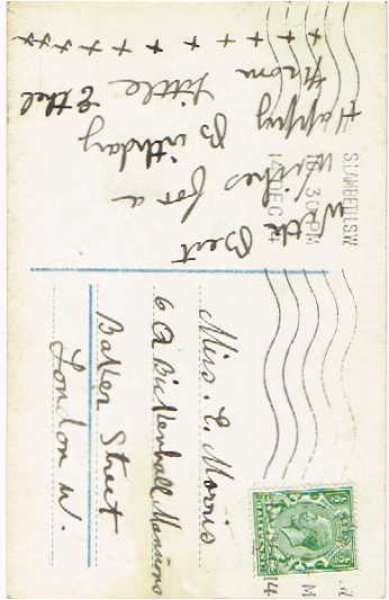 With Best
Wishes for a
Happy Birthday
from Little Ethel
+ + + + + + x x x x x
S.LAMBETH.S.W
30 PM
14 DEC 14
Miss. E. Morris
6 A Bickenhall Mansions
Baker Street
London W.
W
M
14